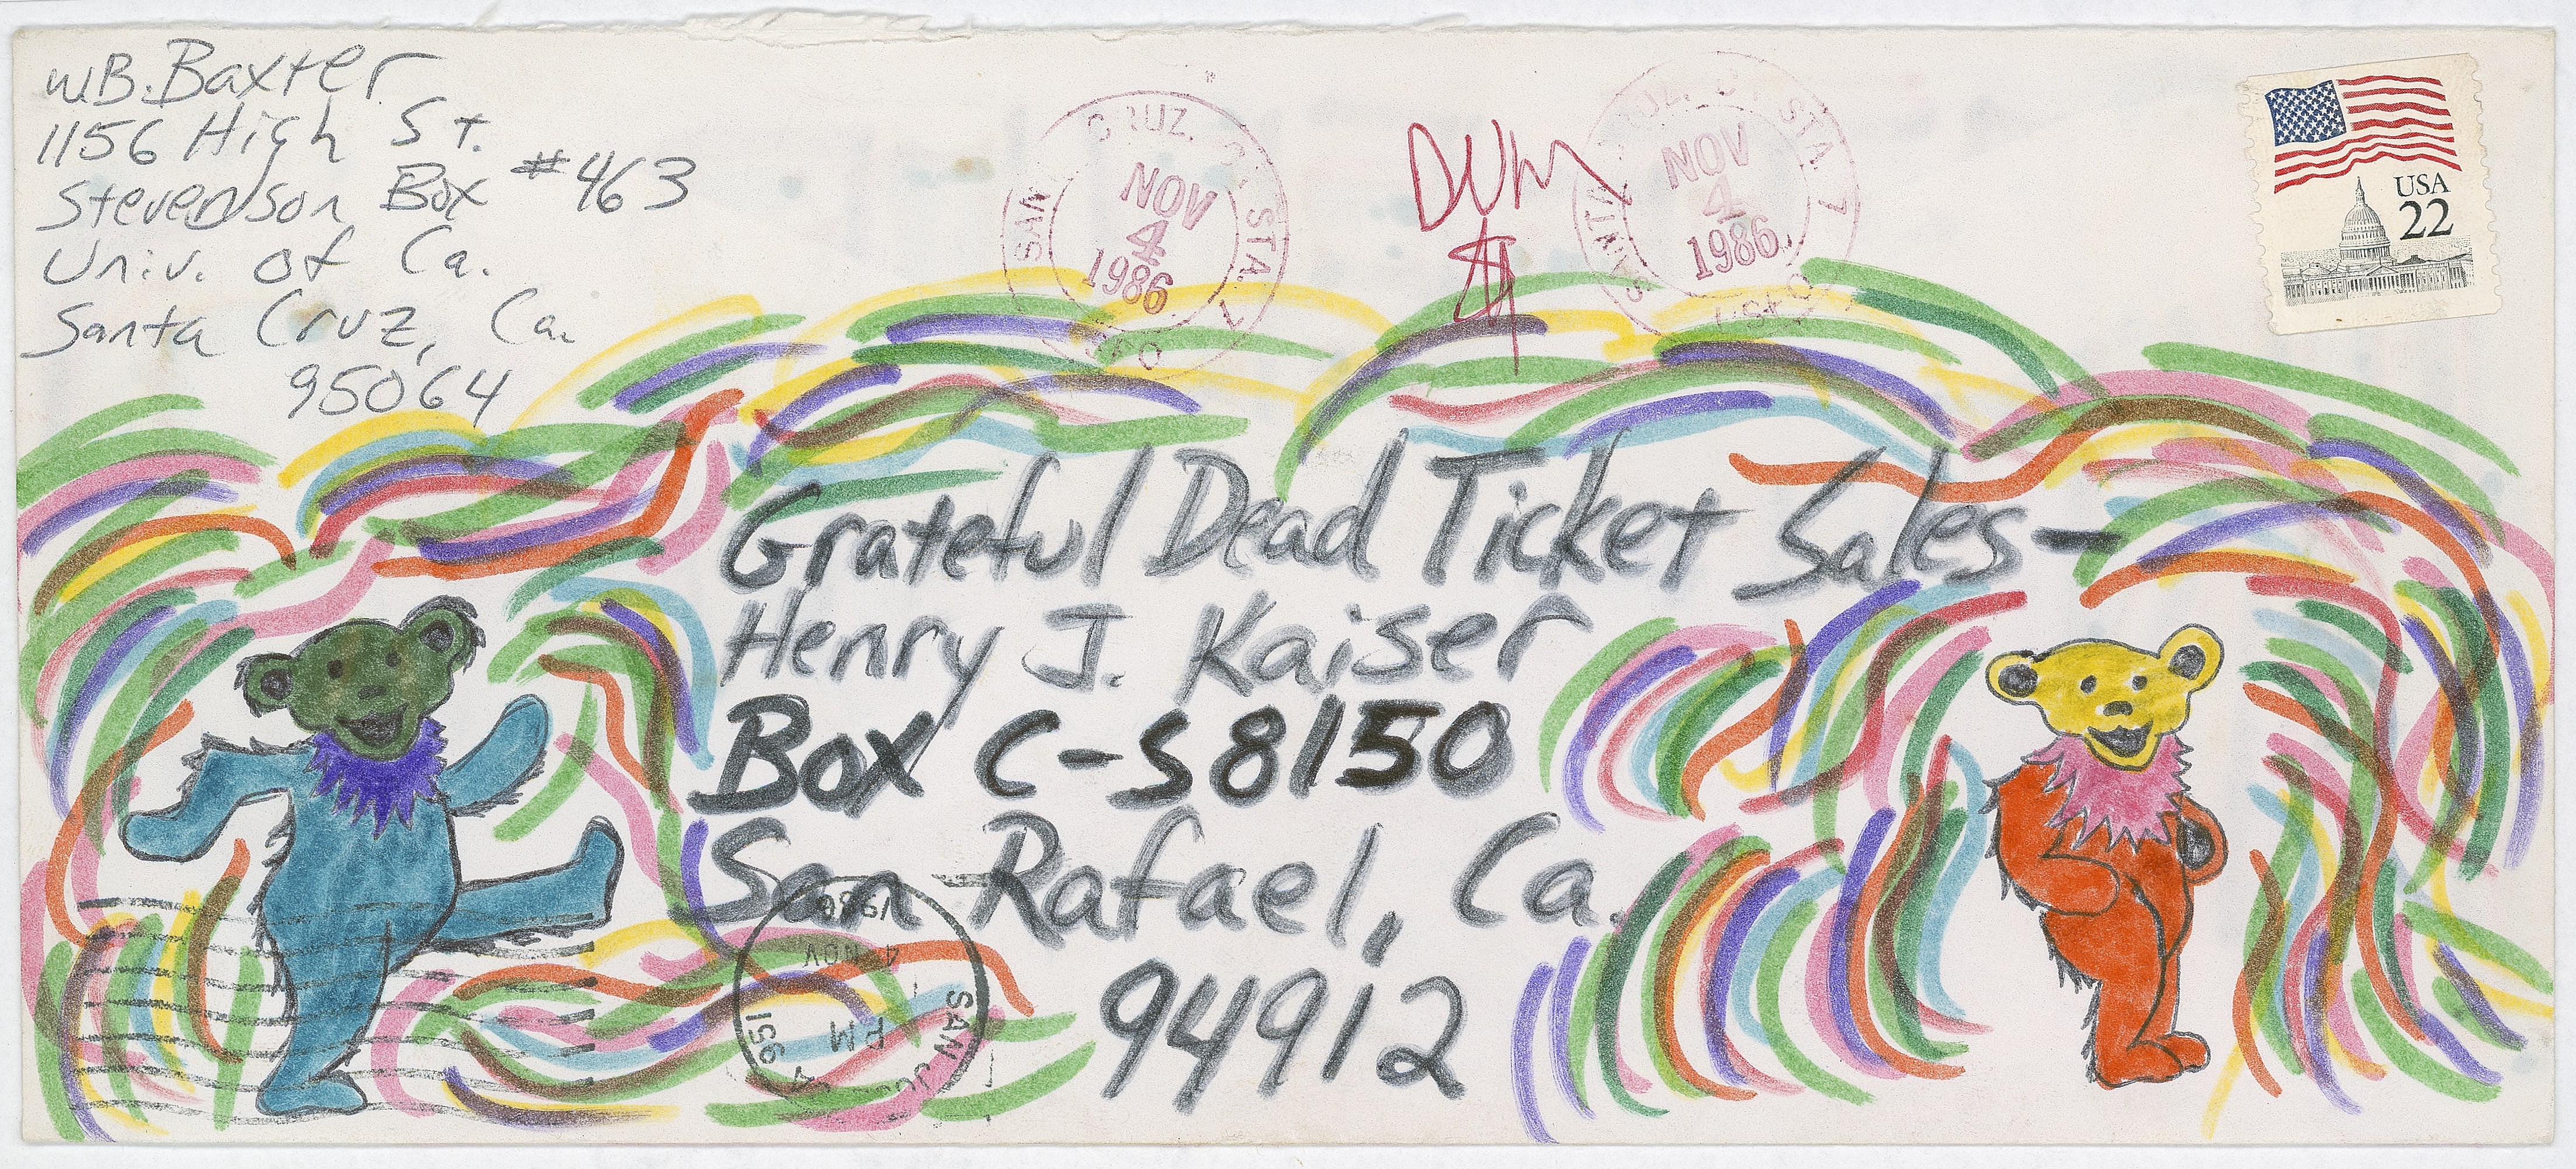 W.B. Baxter
1156 High St.
Stevenson Box #463
Univ. of Ca.
Santa Cruz, Ca.
95064
CRUZ
STA. 7
NOV
4
1986
STA. 7
NOV
4
1986
$
USA
22
Grateful Dead Ticket Sales—
Henry J. Kaiser
Box C-S8150
San Rafael, Ca.
94912
SAN
4 NOV
1986
PM